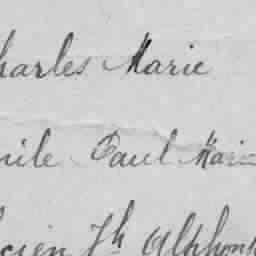 harles Marie
mile Paul Marie
cien Jh Alphons